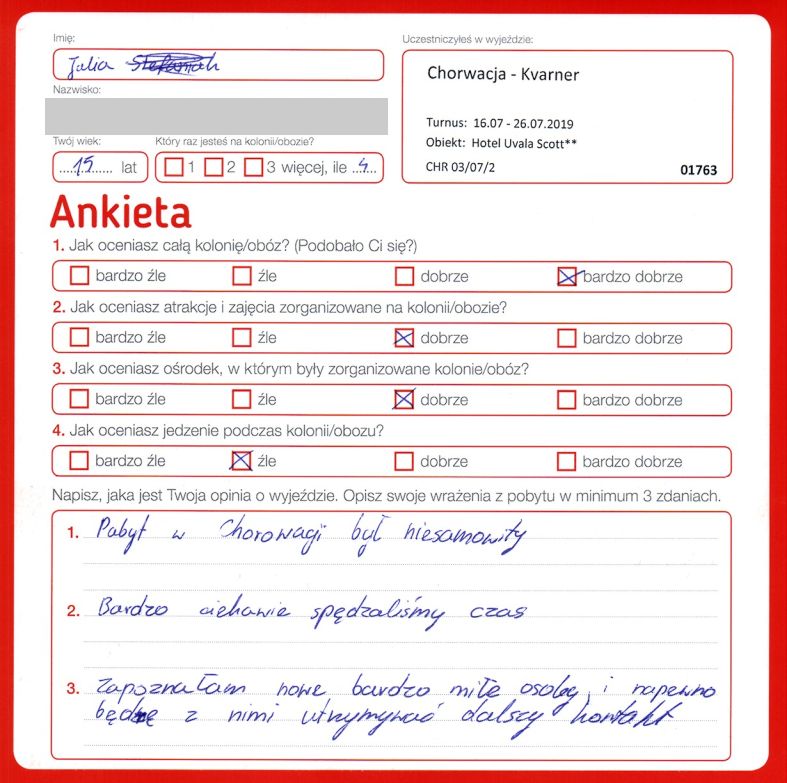 Imię:
Julia
Nazwisko:
Twój wiek:
15 lat
Który raz jesteś na kolonii/obozie?
1 2 3 więcej, ile 4
Uczestniczyłeś w wyjeździe:
Chorwacja - Kvarner
Turnus: 16.07 - 26.07.2019
Obiekt: Hotel Uvala Scott**
CHR 03/07/2 01763
Ankieta
1. Jak oceniasz całą kolonię/obóz? (Podobało Ci się?)
bardzo źle źle dobrze bardzo dobrze
2. Jak oceniasz atrakcje i zajęcia zorganizowane na kolonii/obozie?
bardzo źle źle dobrze bardzo dobrze
3. Jak oceniasz ośrodek, w którym były zorganizowane kolonie/obóz?
bardzo źle źle dobrze bardzo dobrze
4. Jak oceniasz jedzenie podczas kolonii/obozu?
bardzo źle źle dobrze bardzo dobrze
Napisz, jaka jest Twoja opinia o wyjeździe. Opisz swoje wrażenia z pobytu w minimum 3 zdaniach.
1. Pobyt w Chorowacji był niesamowity
2. Bardzo ciekawie spędzaliśmy czas
3. Zapoznałam nowe bardzo miłe osoby, i napewno
będę z nimi utrzymywać dalszy kontakt